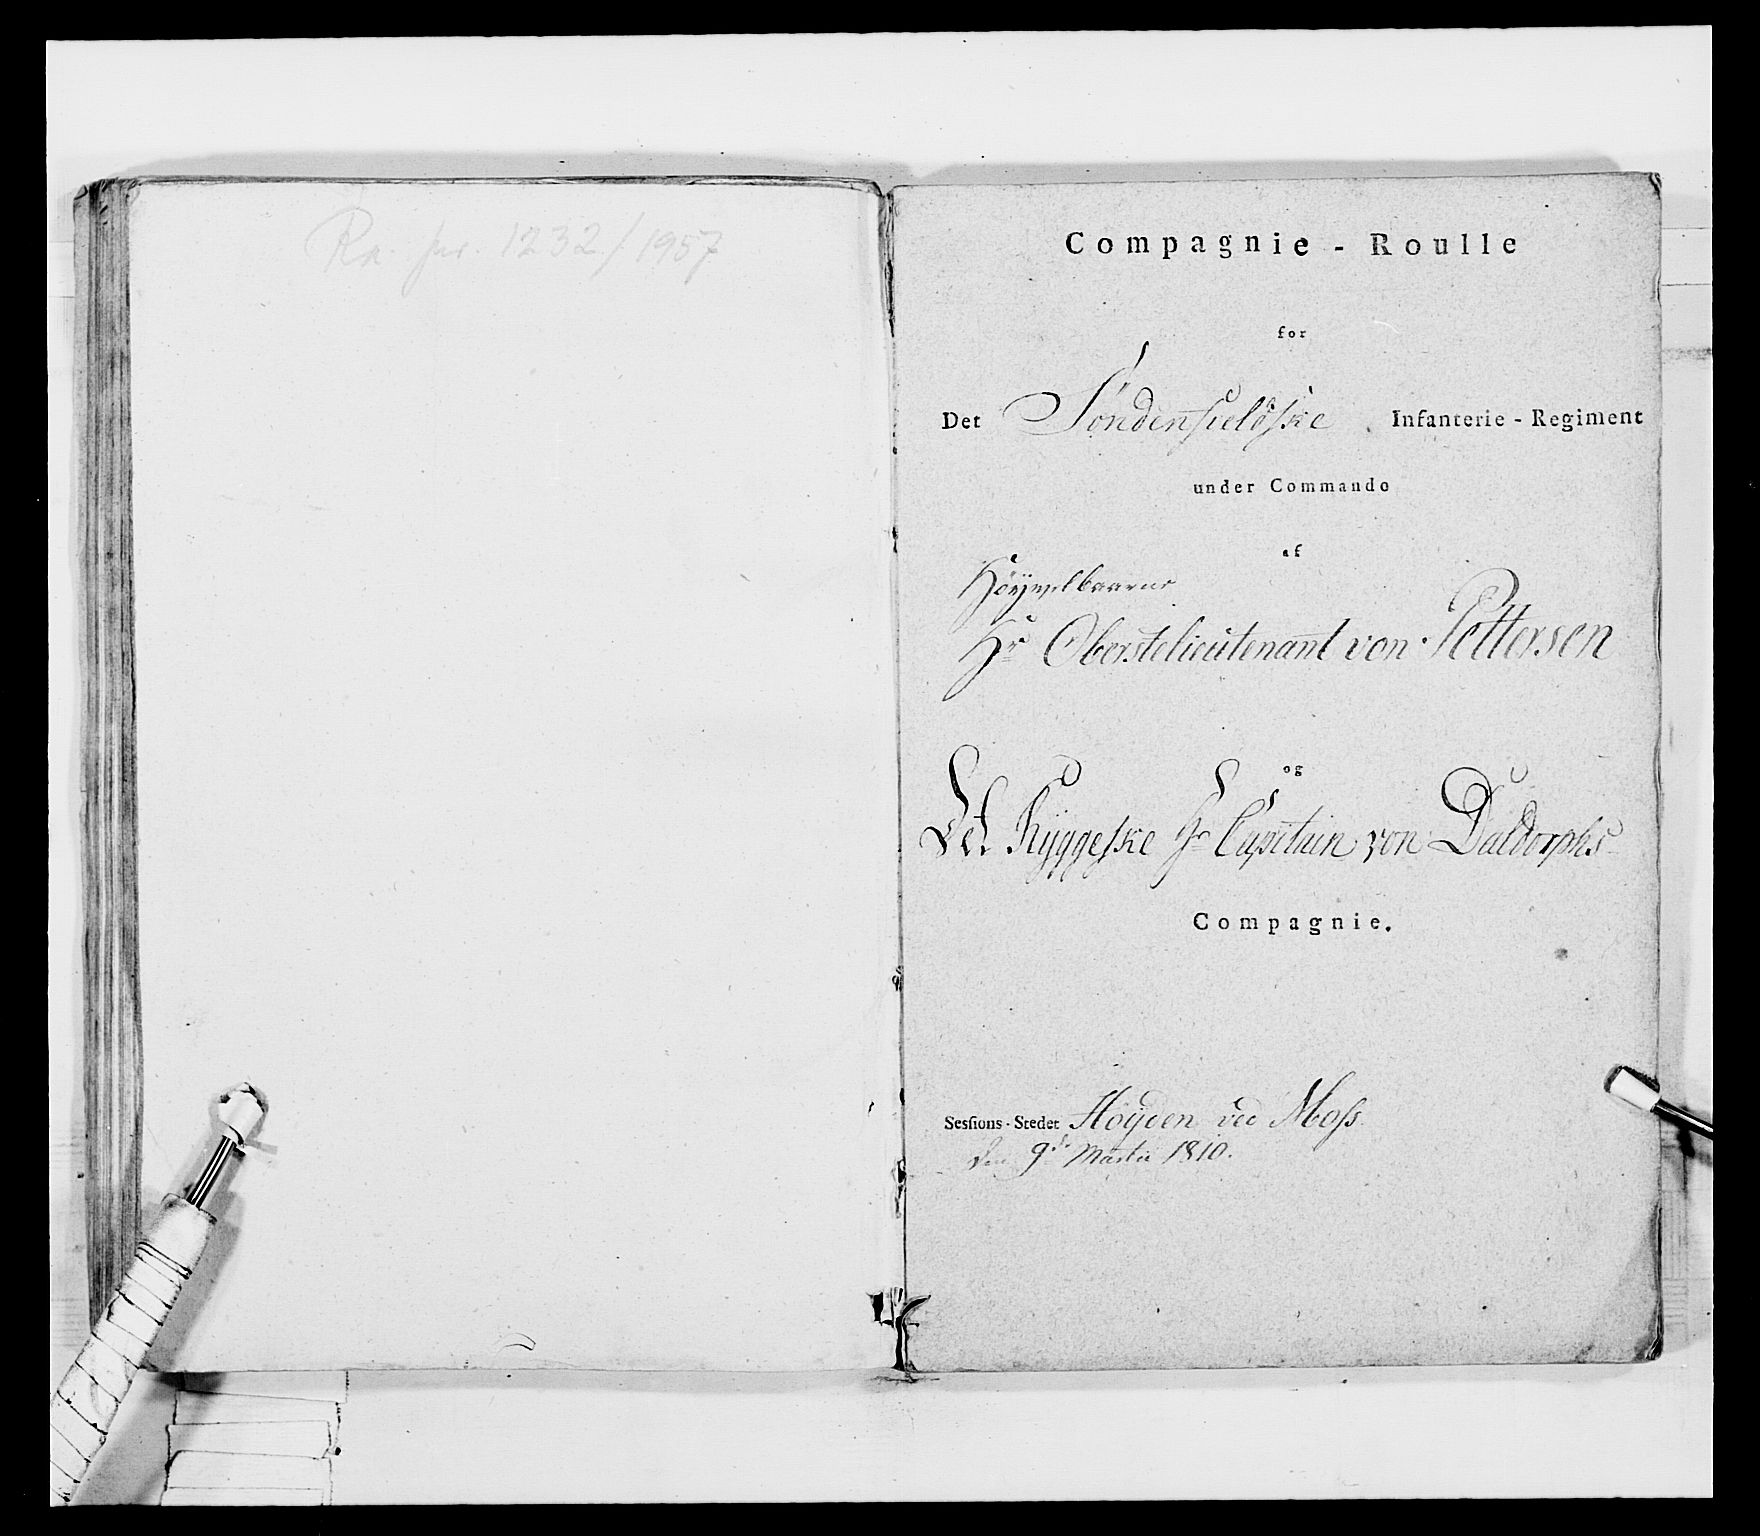 Ra. jnr. 1232/1957
Compagnie - Roulle
for
Det Söndenfieldske Infanterie - Regiment
under Commando
af
Höyvelbaarne
Hr Oberstelieutenant von Pettersen
og
Det Ryggeske Hr Capitain von Daldorphs
Compagnie.
Sesſions-Stedet Höyden ved Moſs
den 9de Martii 1810.